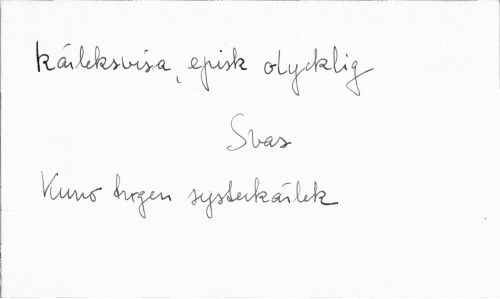 kärleksvisa, episk olycklig
Svas
Kuno trogen systerkärlek